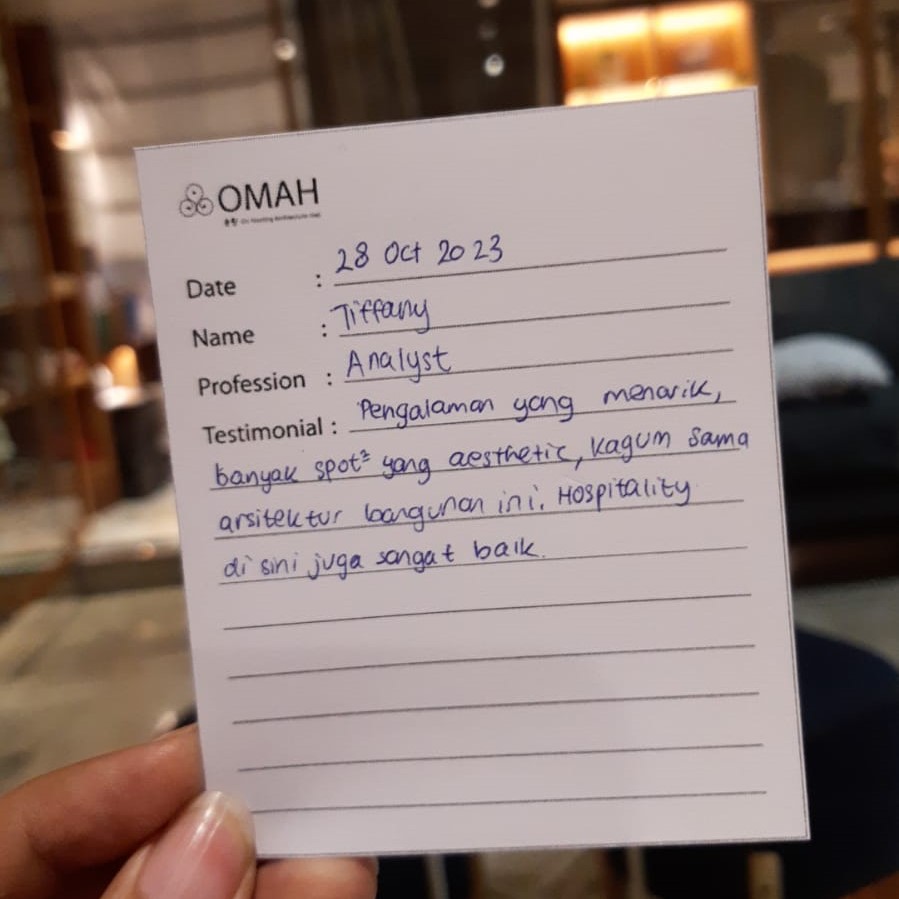 OMAH
Date : 28 Oct 2023
Name : Tiffany
Profession : Analyst
Testimonial : Pengalaman yang menarik,
banyak spot² yang aesthetic, kagum sama
arsitektur bangunan ini. Hospitality
di sini juga sangat baik.